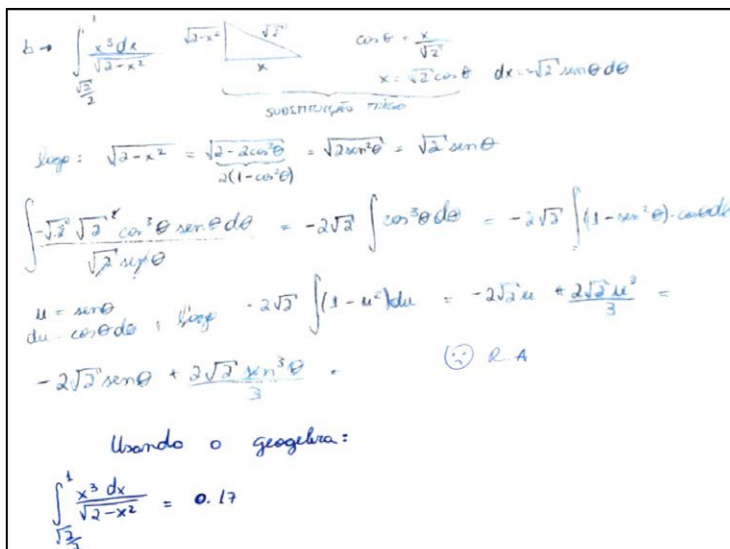 b → ∫_{√2/2}^{1} x³dx/√(2-x²) √(2-x²) √2 x cos θ = x/√2
x = √2 cos θ dx = -√2 sen θ dθ
SUBSTITUIÇÃO TRIGO
logo: √(2-x²) = √(2-2cos²θ) = √(2sen²θ) = √2 sen θ
2(1-cos²θ)
∫ -√2 √2³ cos³θ sen θ dθ / √2 sen θ = -2√2 ∫ cos³θ dθ = -2√2 ∫ (1-sen²θ)·cos θ dθ
u = sen θ
du = cos θ dθ , logo -2√2 ∫ (1-u²)du = -2√2 u + 2√2 u³/3 =
-2√2 sen θ + 2√2 sen³θ/3 = R.A
Usando o geogebra:
∫_{√2/2}^{1} x³ dx/√(2-x²) = 0.17